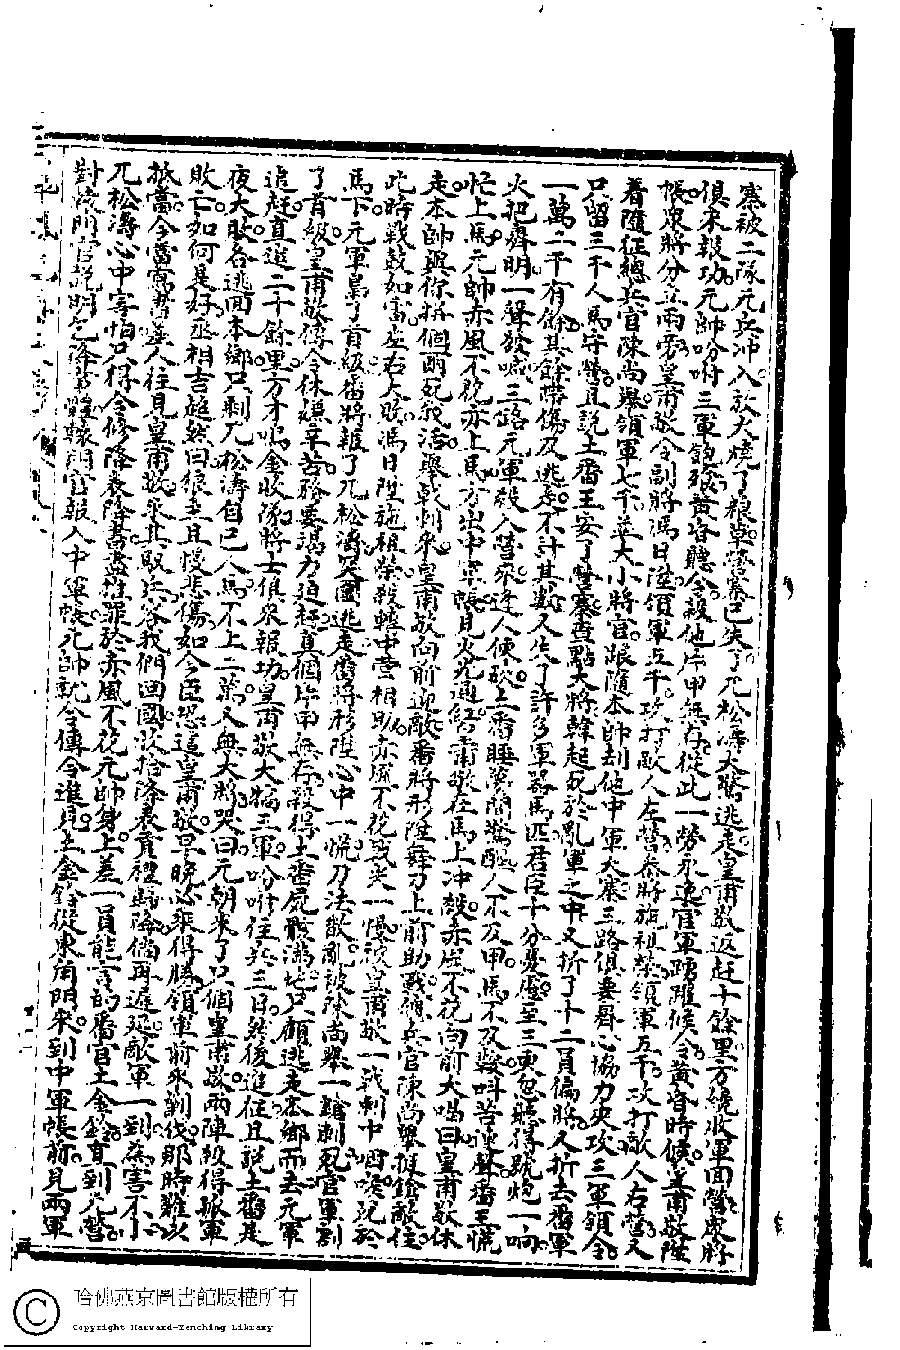 寨被二隊元兵冲入放火燒了粮草營寨已失了兀松濤大驚逃走皇甫敬返赶十餘里方纔收軍回營衆將
俱來報功元帥吩咐三軍飽飱黃昏聽令殺他片甲無存從此一勞永逸官軍踴躍候令黃昏時候皇甫敬陞
帳衆將分立兩旁皇甫敬令副將馮日陞領軍五千攻打敵人左營叅將施祖榮領軍五千攻打敵人右營又
着隨征總兵官陳尚舉領軍七千並大小將官跟隨本帥刦他中軍大寨三路俱要齊心協力夾攻三軍領令
只留三千人馬守營且說土番王安了營寨查點大將韓起死於亂軍之中又折了十二員偏將人折去番軍
一萬二千有餘其餘帶傷及逃走不計其數又失了許多軍器馬匹君臣十分憂慮至三更忽聽得號炮一响
火把齊明一聲發喊三路元軍殺入營來逢人便砍上番睡夢間驚醒人不及甲馬不及鞍叫苦連聲番王慌
忙上馬元帥赤風不花亦上馬方出中軍帳見火光通紅皇甫敬在馬上冲殺赤風不花向前大喝曰皇甫敬休
走本帥與你拚個酌死我活舉乾刺來皇甫敬向前迎敵番將形陞舞刀上前助戰總兵官陳尚舉挺鎗敵住
此時戰鼓如雷左右大敗馮日陞施祖榮殺轉中營相助赤風不花戰失一慢被皇甫敬一戟刺中咽喉死於
馬下元軍梟了首級番將報了兀松濤哭國逃走番將形陞心中一慌刀法散亂被陳尚舉一鎗刺死官軍割
了首級皇甫敬傳令休嫌辛苦務要竭力追赶真個片甲無存殺得土番屍骸滿地只顧逃走本鄉而去元軍
追赶直進二十餘里方才鳴金收隊將士俱來報功皇甫敬大犒三軍吩咐住兵三日然後進征且說土番是
夜大敗各逃回本鄉只剩兀松濤自己人馬不上二萬人無大將哭曰元朝來了只個皇甫敬兩陣殺得孤軍
敗亡如何是好丞相吉超然曰狼主且慢悲傷如今臣恐這皇甫敬早晚必乘得勝領軍前來剿伐那時難以
抵當今當寫書差人往見皇甫敬求其取兵容我們回國收拾降表貢禮歸降倘再遲延敵軍一到為害不小
兀松濤心中害怕只得令修降表降書盡推罪於赤風不花元帥身上差一員能言的番官土金餘直到元營
對轅門官說明乞降第禮轅門官報入中軍帳元帥就令傳令進見土金餘從東角門來到中軍帳前見兩軍
哈佛燕京圖書館版權所有
Copyright Harvard-Yenching Library